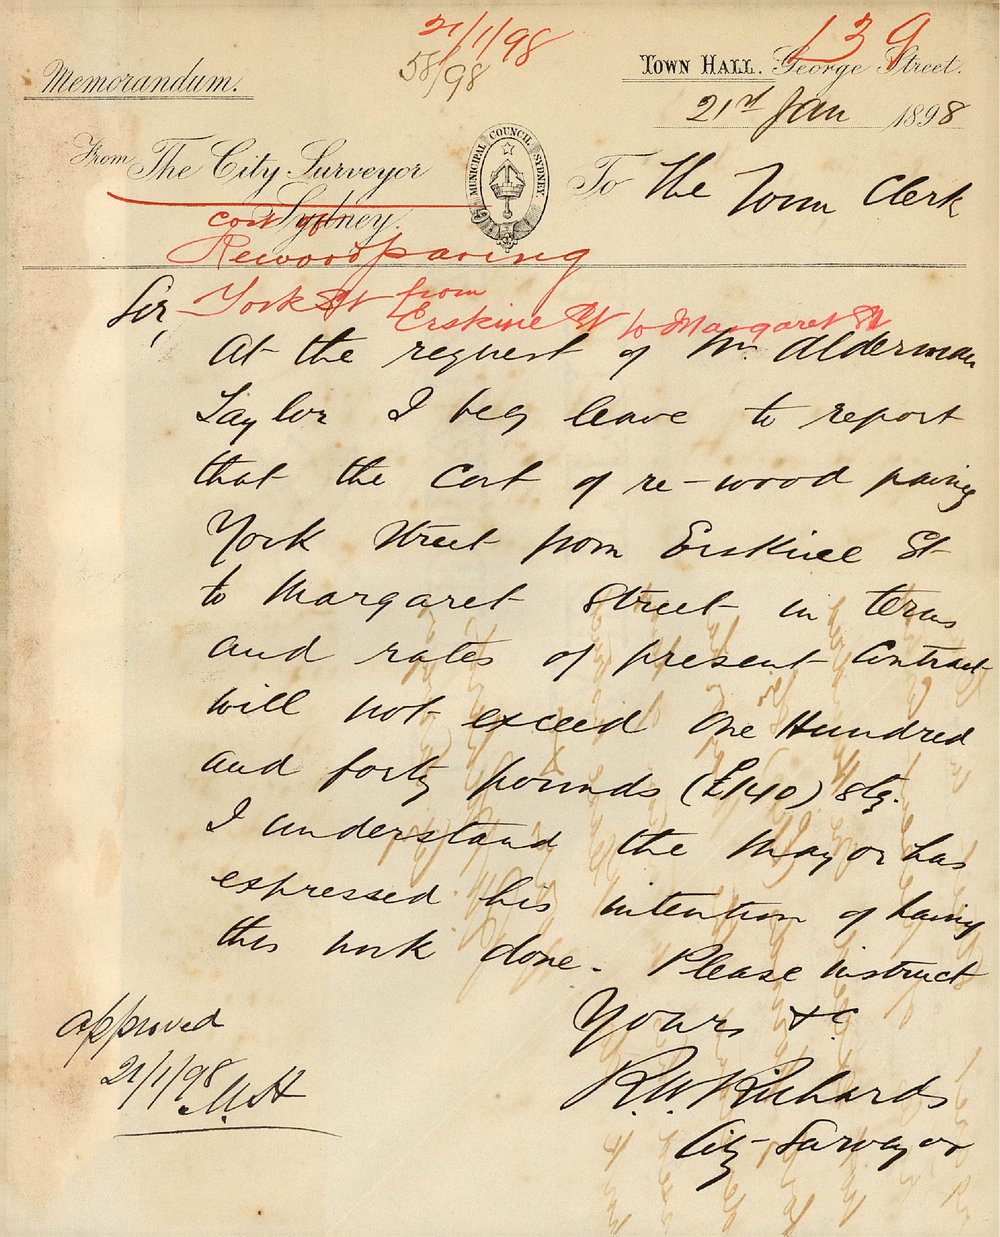 21/1/98
58/98
139
Memorandum.
TOWN HALL. George Street.
21st Jan 1898
From The City Surveyor
Sydney.
MUNICIPAL COUNCIL SYDNEY.
To The Town Clerk
Cost of
Rewoodpaving
York St from
Erskine St to Margaret St
Sir,
At the request of Mr. Alderman
Taylor I beg leave to report
that the Cost of re-wood paving
York Street from Erskine St
to Margaret Street in terms
and rates of present Contract
will not exceed One Hundred
and forty pounds (£140) Stg.
I understand the Mayor has
expressed his intention of having
this work done. Please instruct
Yours &c
R.W. Richards
City Surveyor
approved
21/1/98